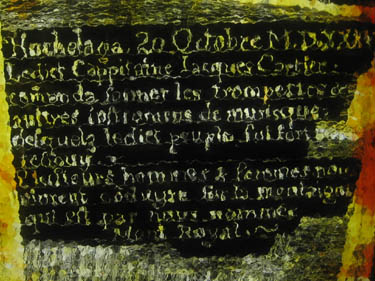 Hochelaga, 20 Octobre M.D.XXXV
Ledict Cappitaine Jacques Cartier
comanda sonner les trompettes et
autres instrumens de musique
desquelz ledict peuple fut fort
resjouy
Plusieurs hommes & femmes nous
vindrent conduyre sur la montaigne
qui est par nous nommée
Mont Royal